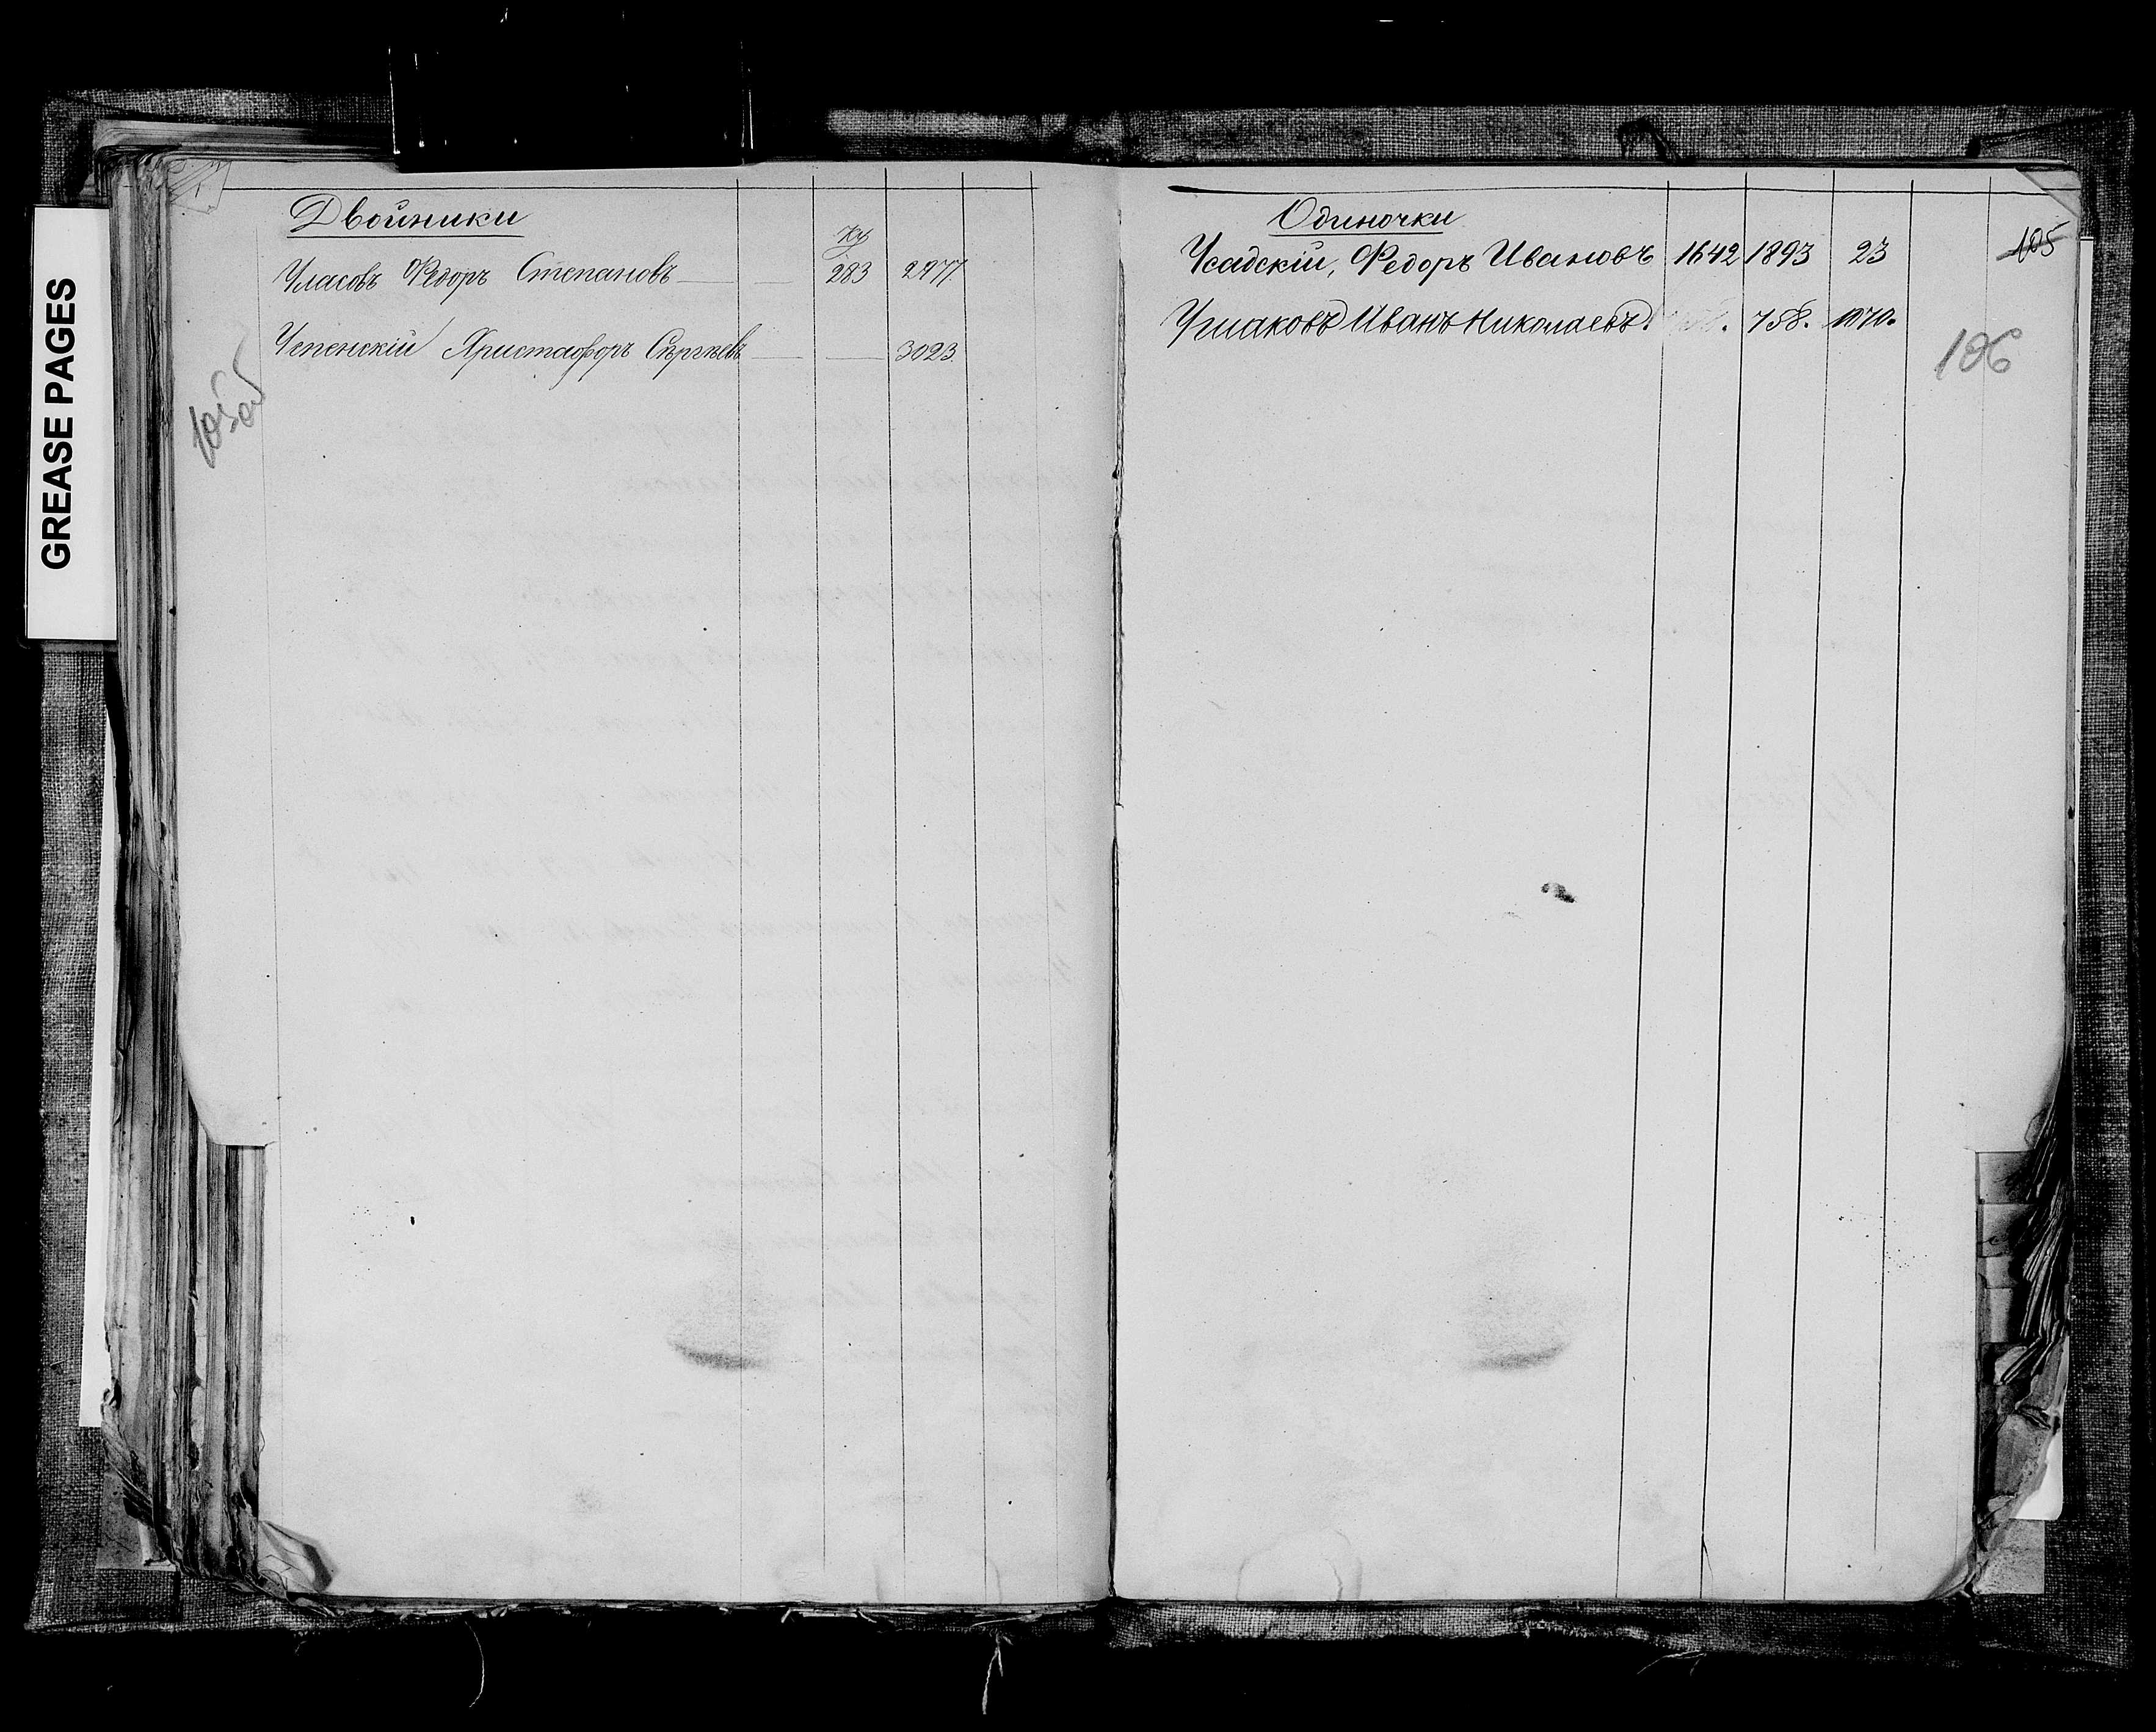 GREASE PAGES
Двойники
Куб
Уласовъ Федоръ Степановъ — — 283 2977
Успенскій Христофоръ Сергѣевъ — — 3023
105об
Одиночки
105
Усадскій, Федоръ Ивановъ 1642 1893 23
Ушаковъ Иванъ Николаевъ. 758. 1070.
106